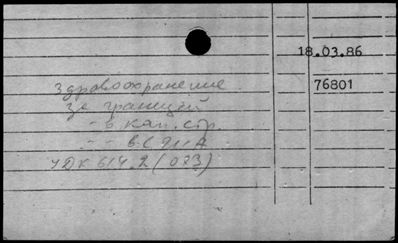 18.03.86
76801
Здравоохранение
за границей
- в кап. стр.
- - в США
УДК 614.2(073)